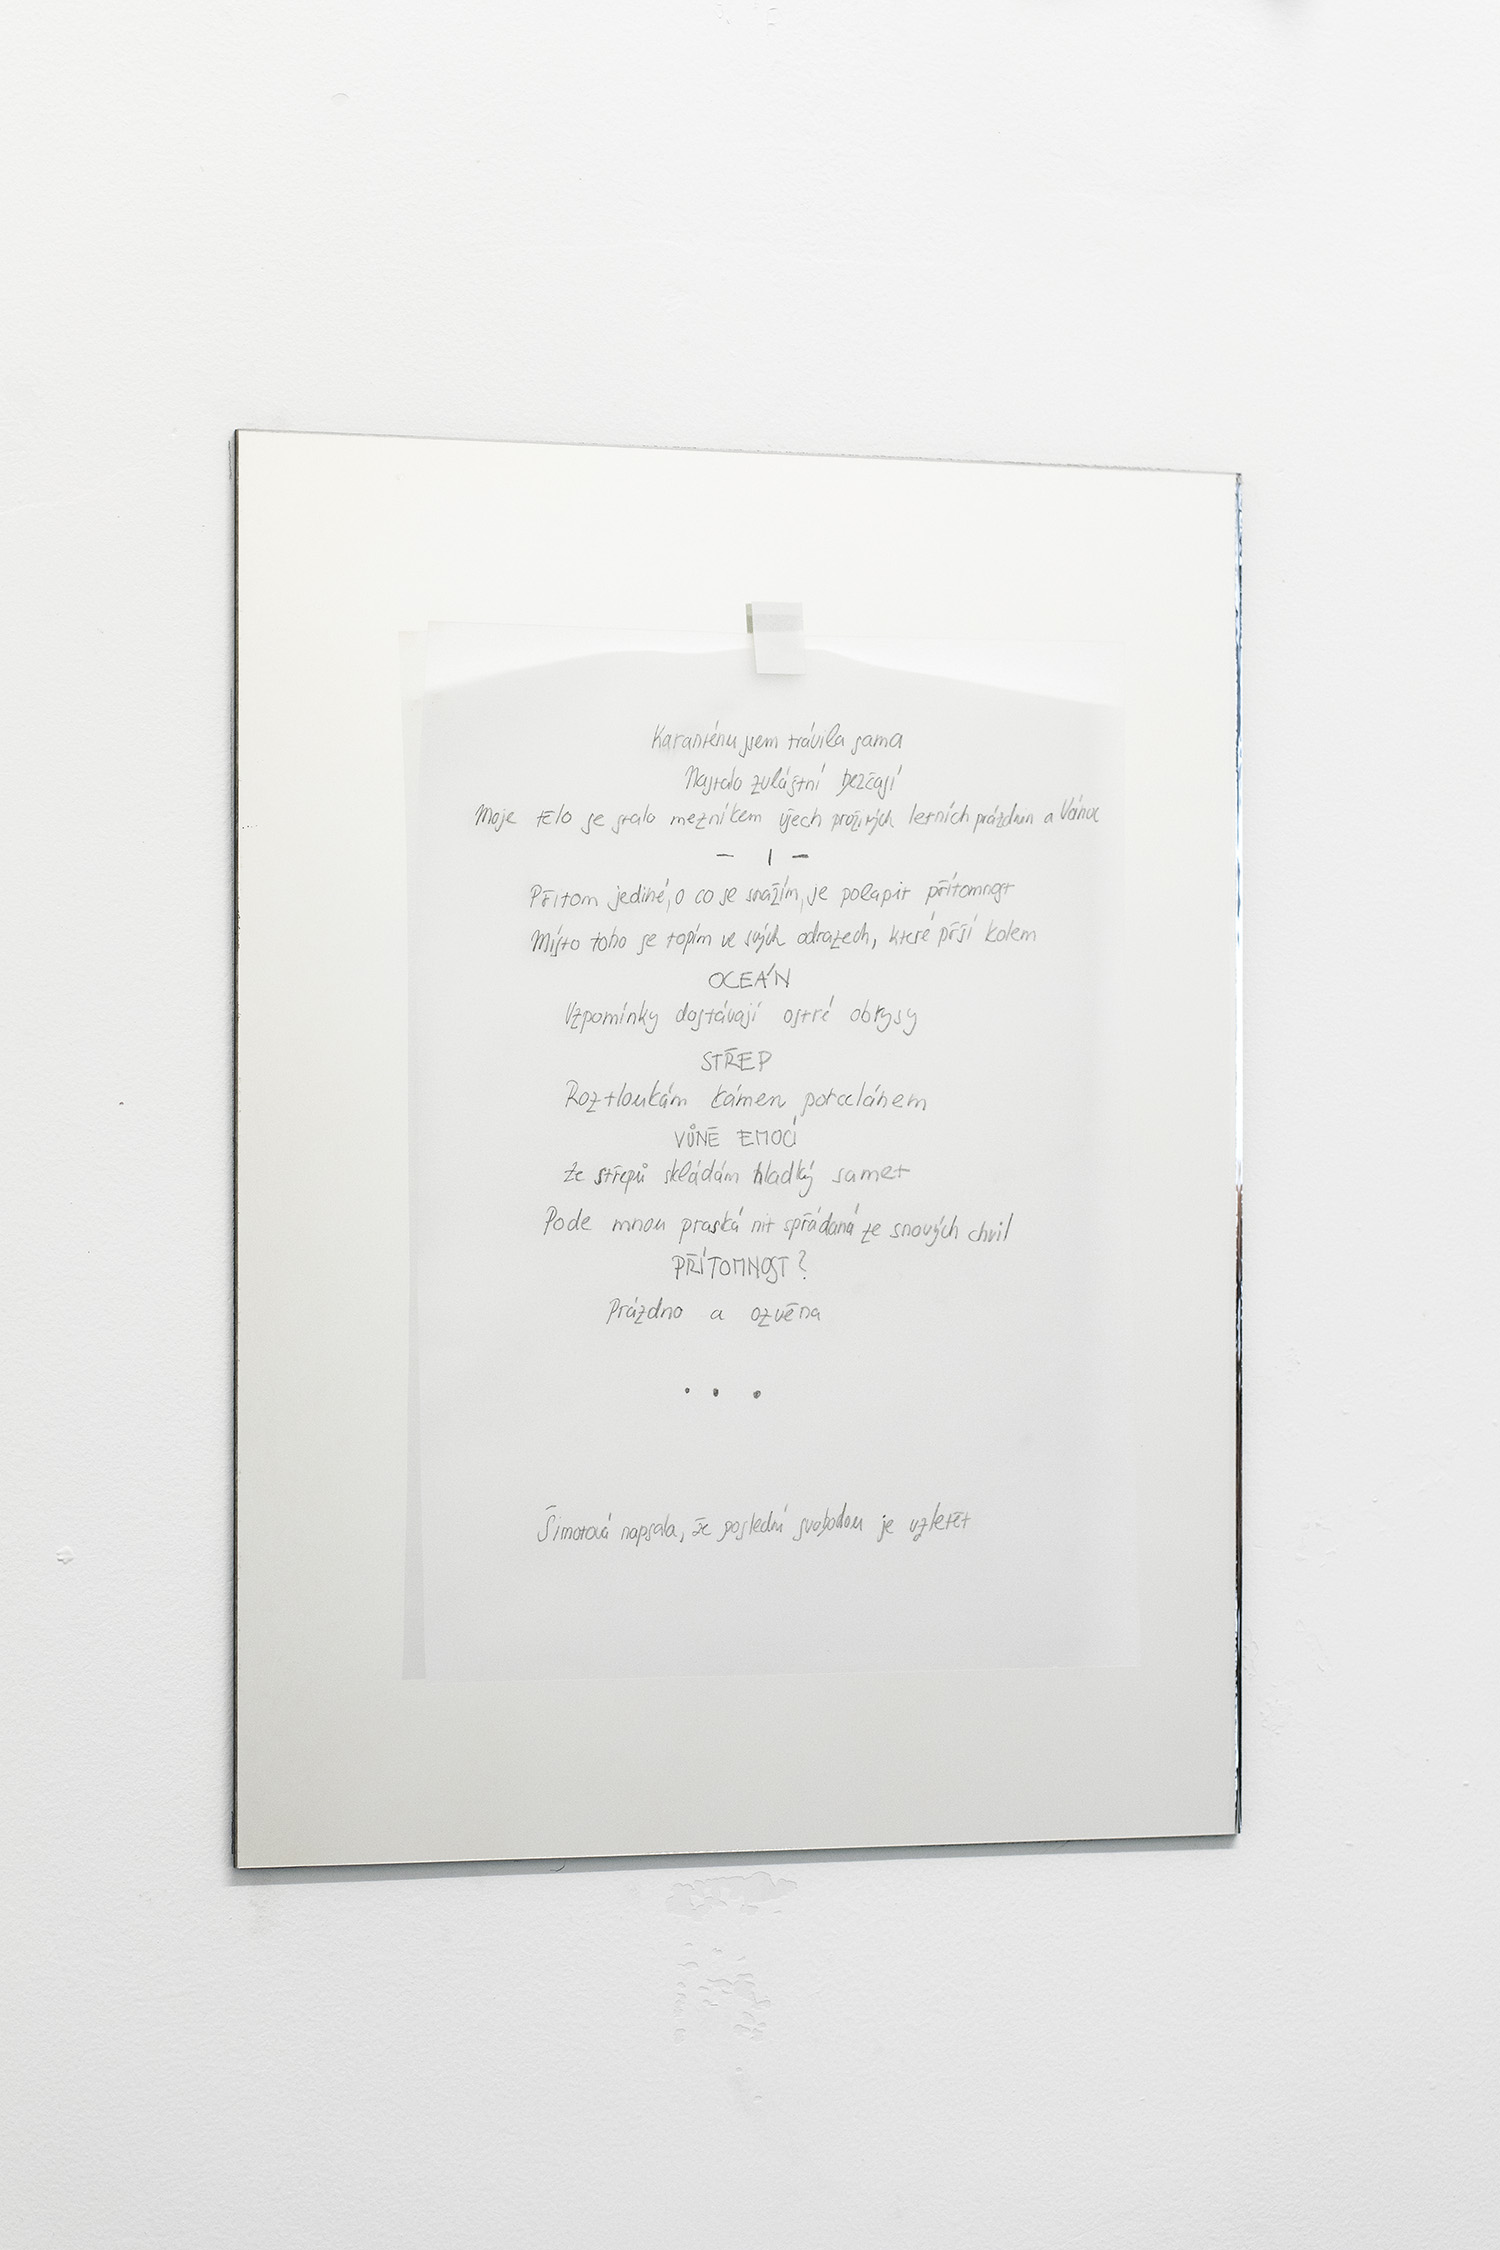 Karanténu jsem trávila sama
Nastalo zvláštní bezčasí
Moje tělo se stalo mezníkem všech prožitých letních prázdnin a Vánoc
– | –
Přitom jediné, o co se snažím, je polapit přítomnost
Místo toho se topím ve svých odrazech, které prší kolem
OCEÁN
Vzpomínky dostávají ostré obrysy
STŘEP
Roztloukám kámen porcelánem
VŮNĚ EMOCÍ
Ze střepů skládám hladký samet
Pode mnou praská nit spřádaná ze snových chvil
PŘÍTOMNOST?
Prázdno a ozvěna
. . .
Šimotová napsala, že poslední svobodou je vzletět